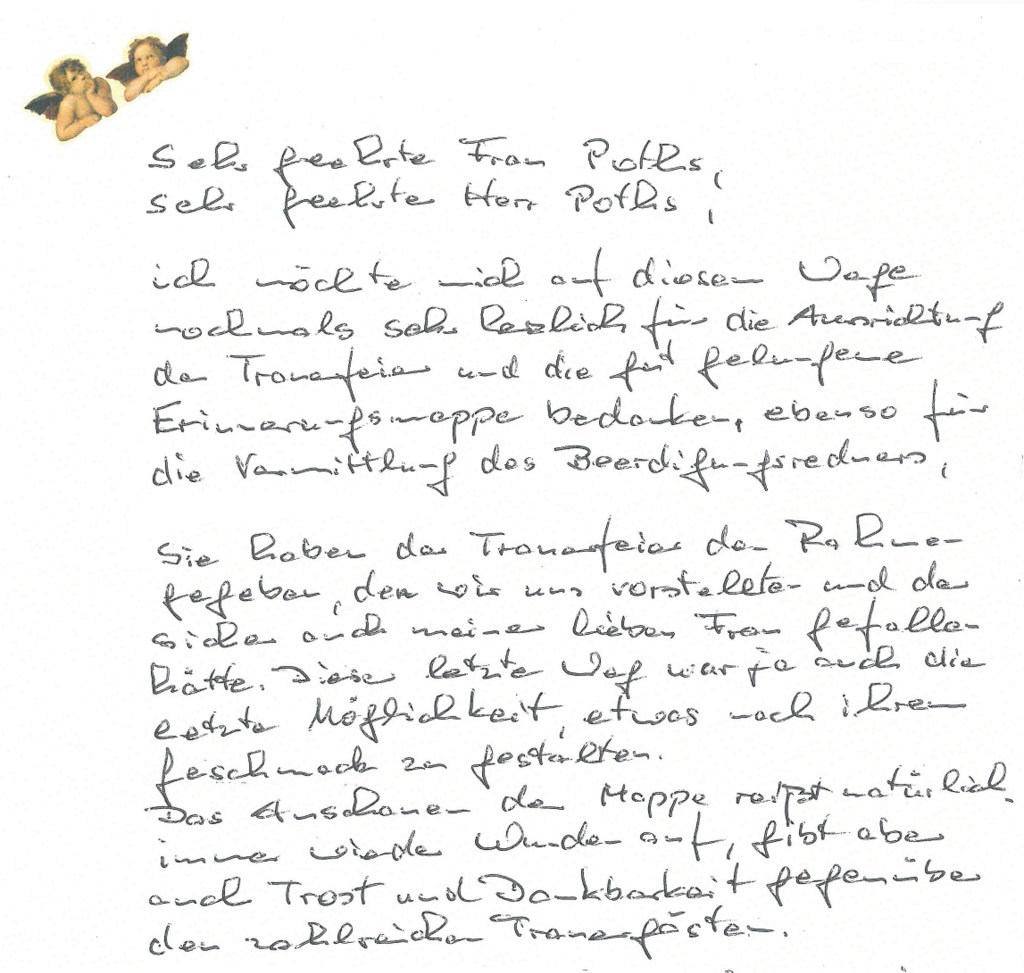 Sehr geehrte Frau Poths,
sehr geehrter Herr Poths,
ich möchte mich auf diesem Wege
nochmals sehr herzlich für die Ausrichtung
der Trauerfeier und die gut gelungene
Erinnerungsmappe bedanken, ebenso für
die Vermittlung des Beerdigungsredners.
Sie haben der Trauerfeier den Rahmen
gegeben, den wir uns vorstellten und der
sicher auch meiner lieben Frau gefallen
hätte. Dieser letzte Weg war ja auch die
letzte Möglichkeit, etwas nach ihrem
Geschmack zu gestalten.
Das Anschauen der Mappe reißt natürlich
immer wieder Wunden auf, gibt aber
auch Trost und Dankbarkeit gegenüber
den zahlreichen Trauergästen.